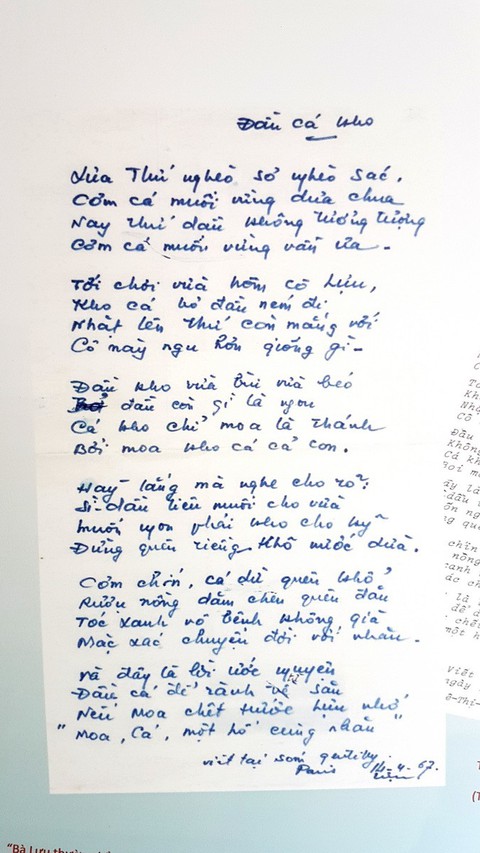 Đầu cá kho
Xưa Thú nghèo sơ nghèo sác,
Cơm cá muối vừng dưa chua
Nay Thú dầu không tưởng tượng
Cơm cá muối vừng vẫn ưa.
Tối chơi vừa hôm cô Lựu,
Kho cá bỏ đầu ném đi,
Nhặt lên Thú còn mắng với
Cô này ngu hơn giống gì.
Đầu kho vừa bùi vừa béo
đầu còn gì là ngon
Cá kho chỉ moa là Thánh
Bởi moa kho cá cả con.
Hãy lắng mà nghe cho rõ:
Sì dầu tiêu muối cho vừa
muốn ngon phải kho cho kỹ
Đừng quên riềng khô nước dừa.
Cơm chín, cá dừ quên khổ
Rượu nồng dăm chén quên đầu
Tóc xanh vô bệnh không già
Mặc xác chuyện đời với nhau.
Và đây là lời ước nguyện
Đầu cá để rành về sau
Nếu moa chết trước Lựu nhớ
"Moa, Cá, một hố cùng nhau"
viết tại gentilly
Paris 14-4-67.
Đầu
Không
Cá kh
Viết
ngày
ê-Thi-
"Bà Lưu